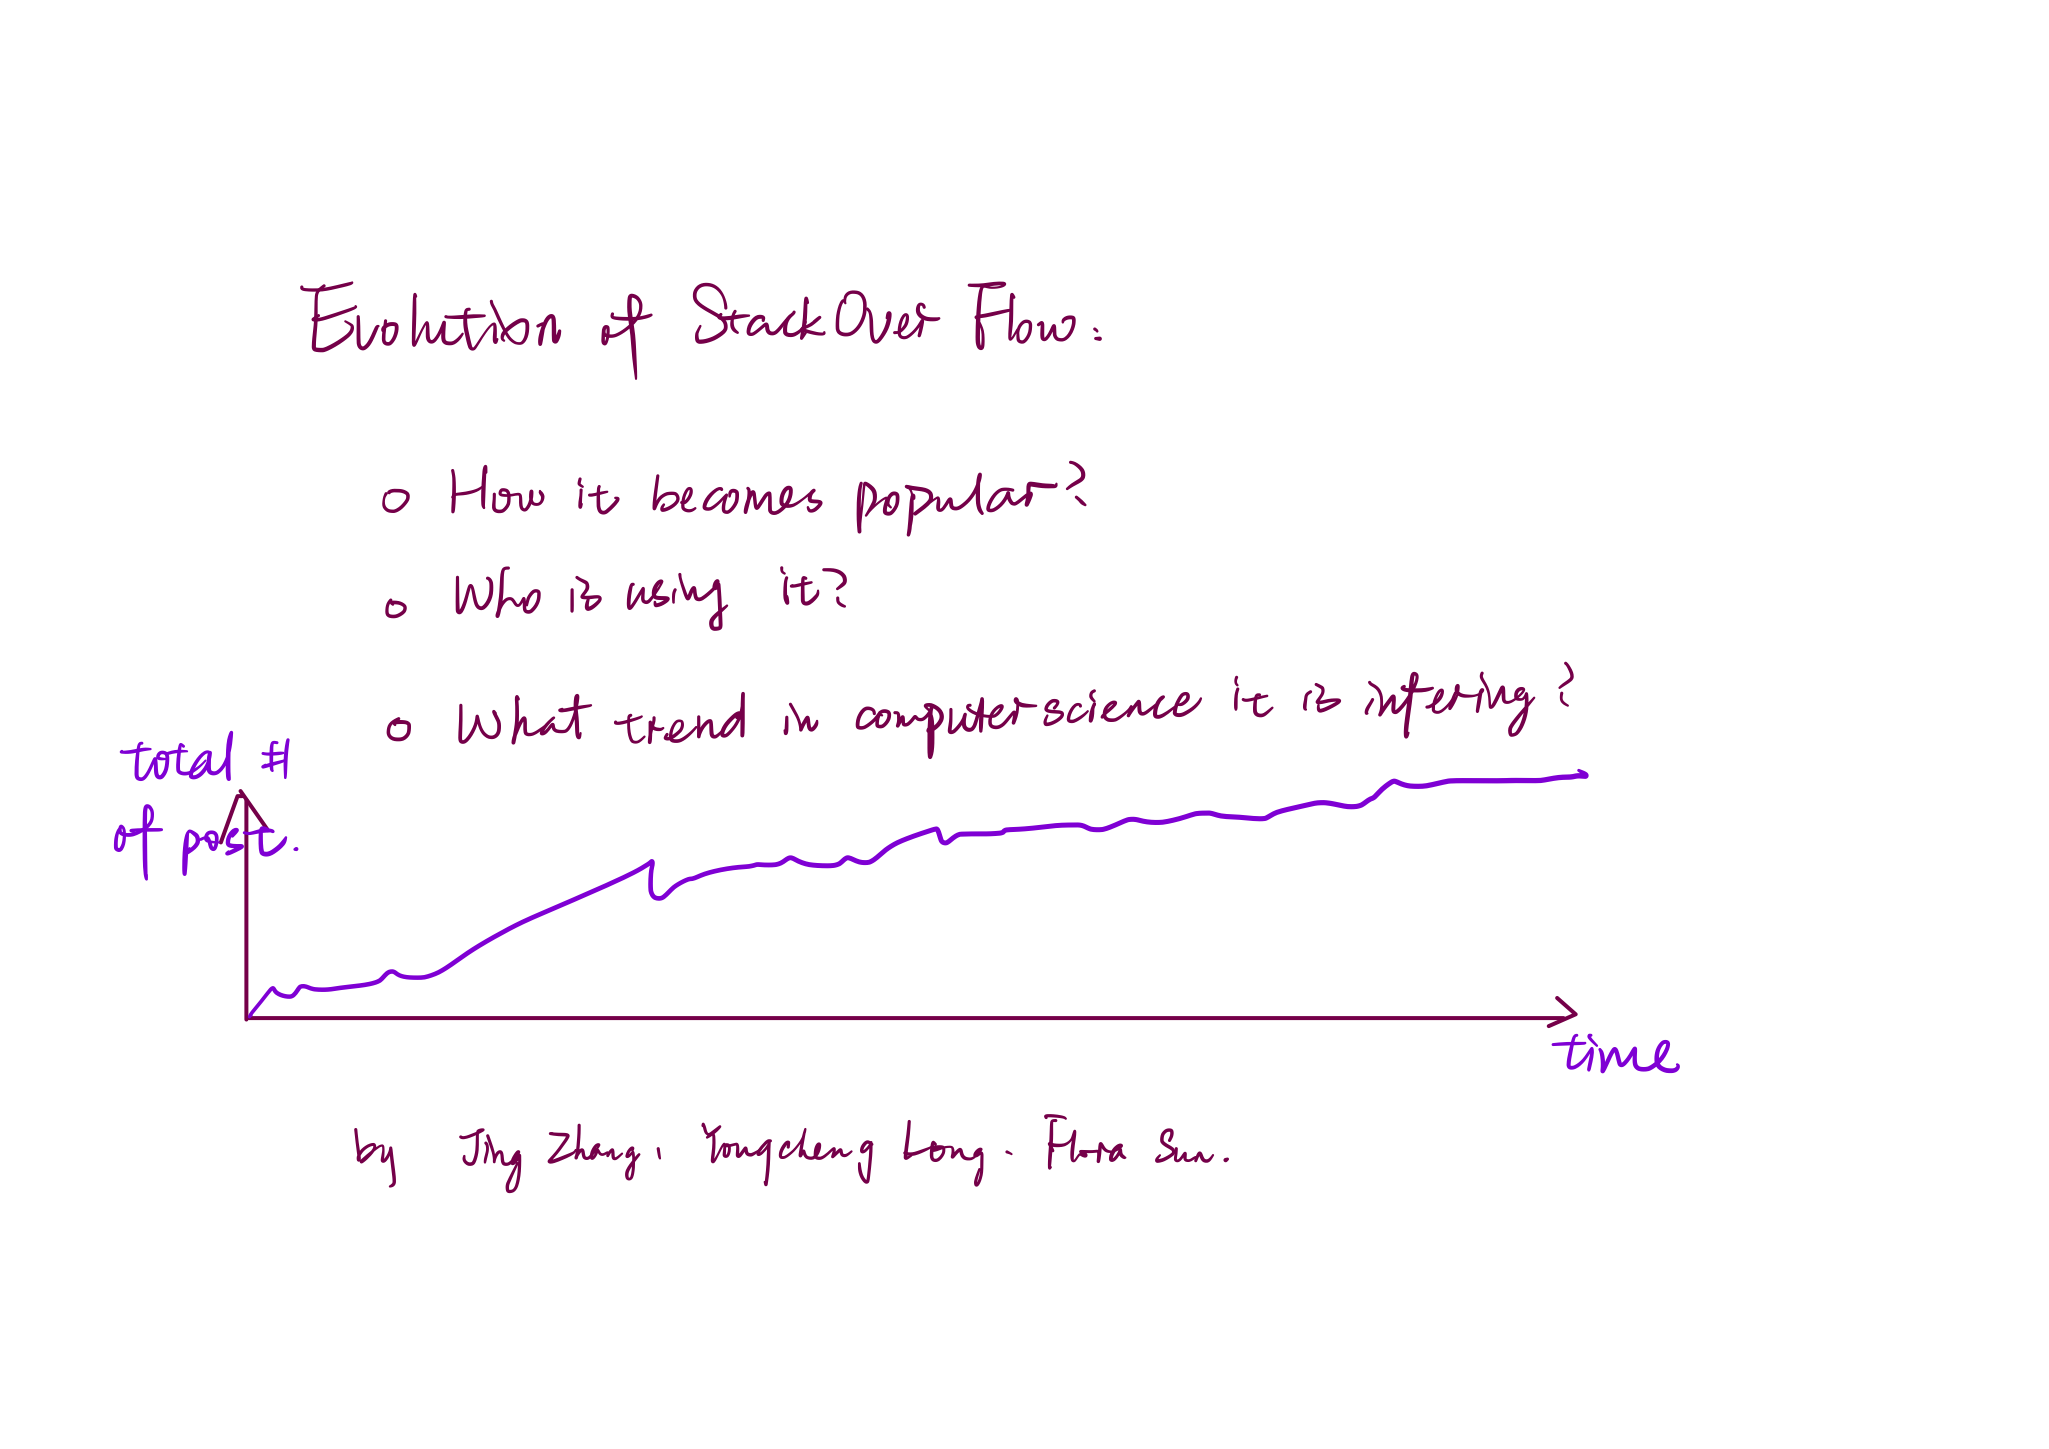 Evolution of StackOver Flow:
o How it becomes popular?
o Who is using it?
o What trend in computer science it is infering?
total #
of post.
time
by Jing Zhang, Yongcheng Long. Flora Sun.